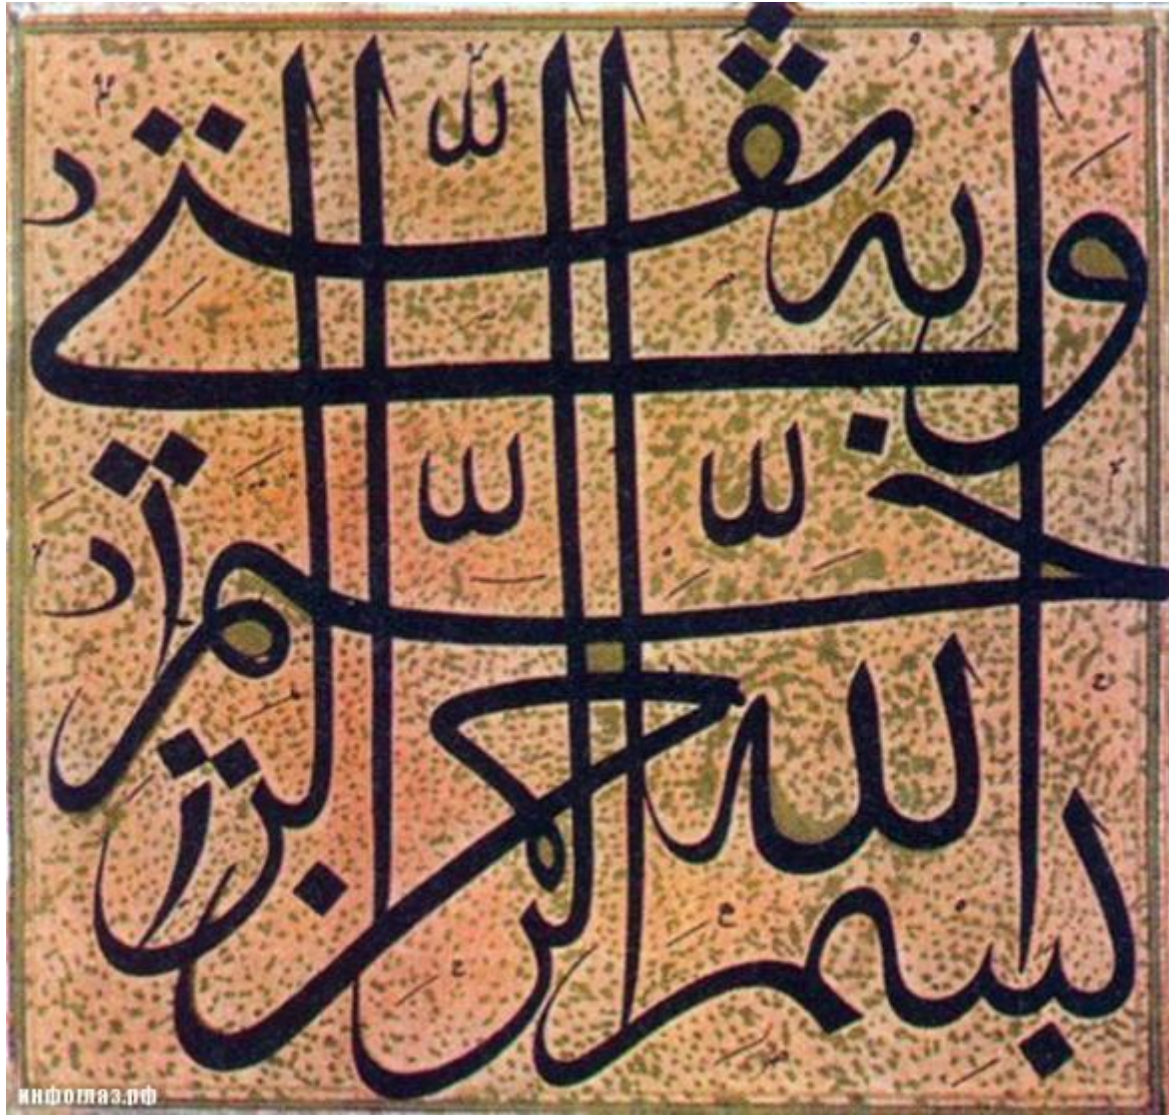 بسم الله
الرحمن الرحيم
وبه ثقتي
инфоглаз.рф